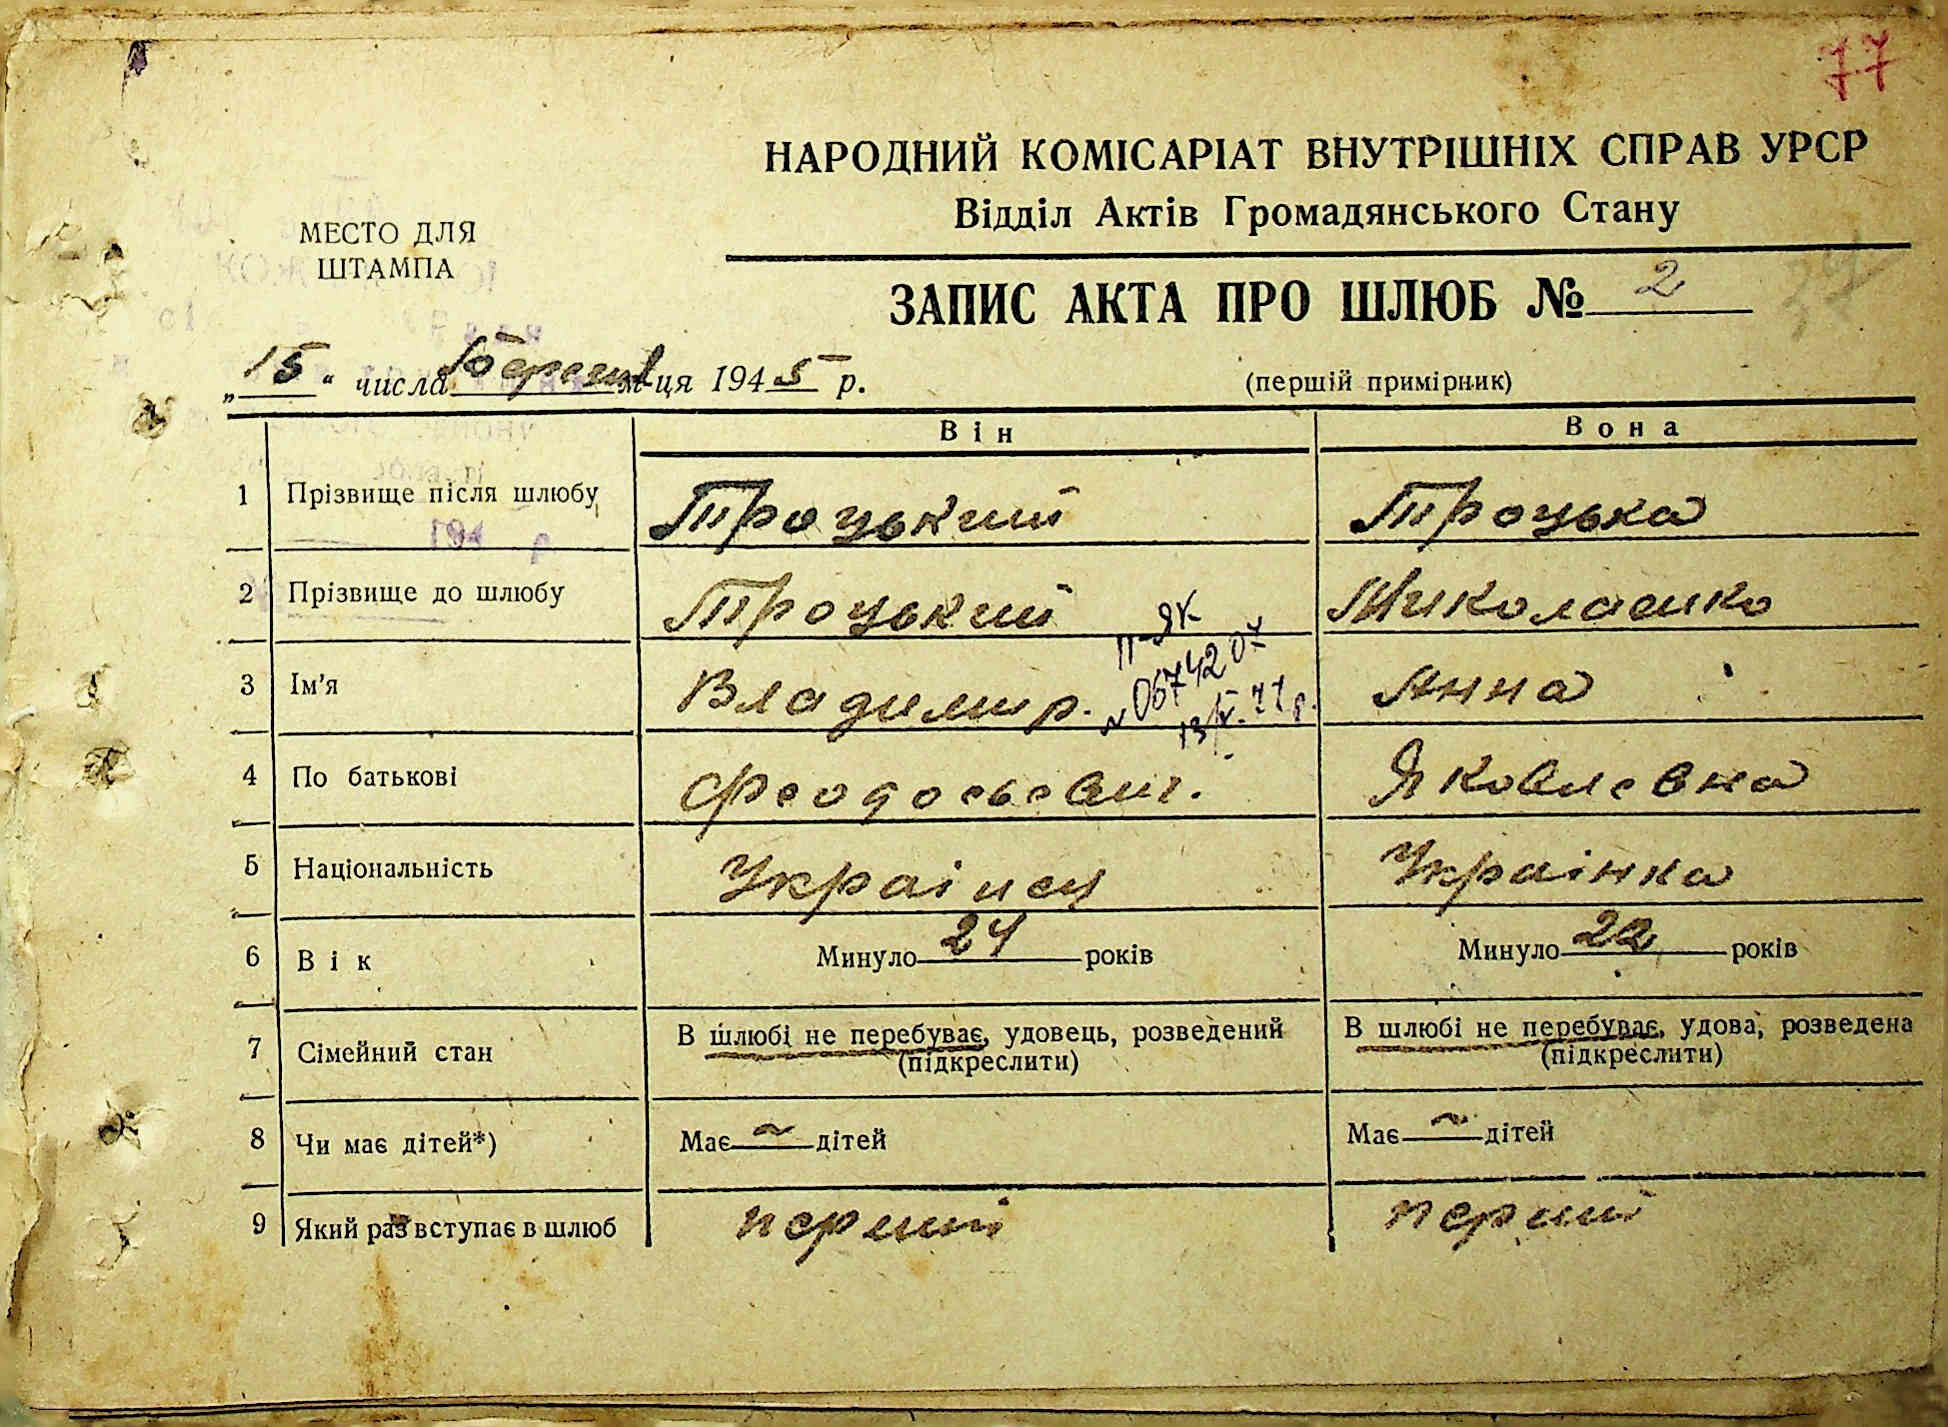 77
НАРОДНИЙ КОМІСАРІАТ ВНУТРІШНІХ СПРАВ УРСР
Відділ Актів Громадянського Стану
МЕСТО ДЛЯ
ШТАМПА
ЗАПИС АКТА ПРО ШЛЮБ № 2
„15“ числа березня м-ця 1945 р.
(першій примірник)
Він Вона
1 Прізвище після шлюбу Троцький Троцька
2 Прізвище до шлюбу Троцький Миколаенко
II-ЯК
3 Ім'я Владимир. Анна
№ 067420
13/V-77 р.
4 По батькові Феодосьевич. Яковлевна
5 Національність Украінец Украінка
6 Вік Минуло 24 років Минуло 22 років
7 Сімейний стан В шлюбі не перебуває, удовець, розведений В шлюбі не перебуває, удова, розведена
(підкреслити) (підкреслити)
8 Чи має дітей*) Має ~ дітей Має ~ дітей
9 Який раз вступає в шлюб перший перший